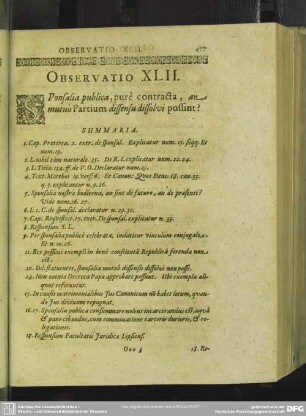 OBSERVATIO XLII.
477
OBSERVATIO XLII.
SPonsalia publica, purè contracta, an
mutuo Partium dissensu dissolvi possint?
SUMMARIA.
1. Cap. Præterea. 2. extr. de sponsal. Explicatur num. 15. seqq. Et
num. 19.
2. L. nihil tàm naturale. 35. De R. I. explicatur num. 22. 24.
3. L. Titia. 134. ff. de V. O. Declaratur num. 25.
4. Text. Matthæi 19. vers. 6. Et Canon: Quos Deus. 18. can. 33.
q. 2. explicantur n. 9. 26.
5. Sponsalia nostra hodierna, an sint de futuro, an de præsenti?
Vide num. 26. 27.
6. L. 1. C. de sponsal. declaratur n. 29. 30.
7. Cap. Requisivit. 17. extr. De sponsal. explicatur n. 33.
8. Responsum S. L.
9. Per sponsalia publicè celebrata, induitur vinculum conjugale.
Et n. 10. 26.
11. Res pessimi exempli in benè constitutâ Republicâ ferenda non
est.
12. Dd. statuentes, sponsalia mutuò dissensu dissolvi non posse.
14. Non omnia Decreta Papæ approbari possunt. Ubi exempla ali-
quot referuntur.
15. In causis matrimonialibus Jus Canonicum nō habet locum, quan-
do Jus divinum repugnat.
16. 17. Sponsalia publica consummare nolens incarcerandus est, aquâ
& pane cibandus, cum comminatione carceris durioris, & re-
legationis.
18. Responsum Facultatis Juridicæ Lipsens.
Ooo 3
18. Re-